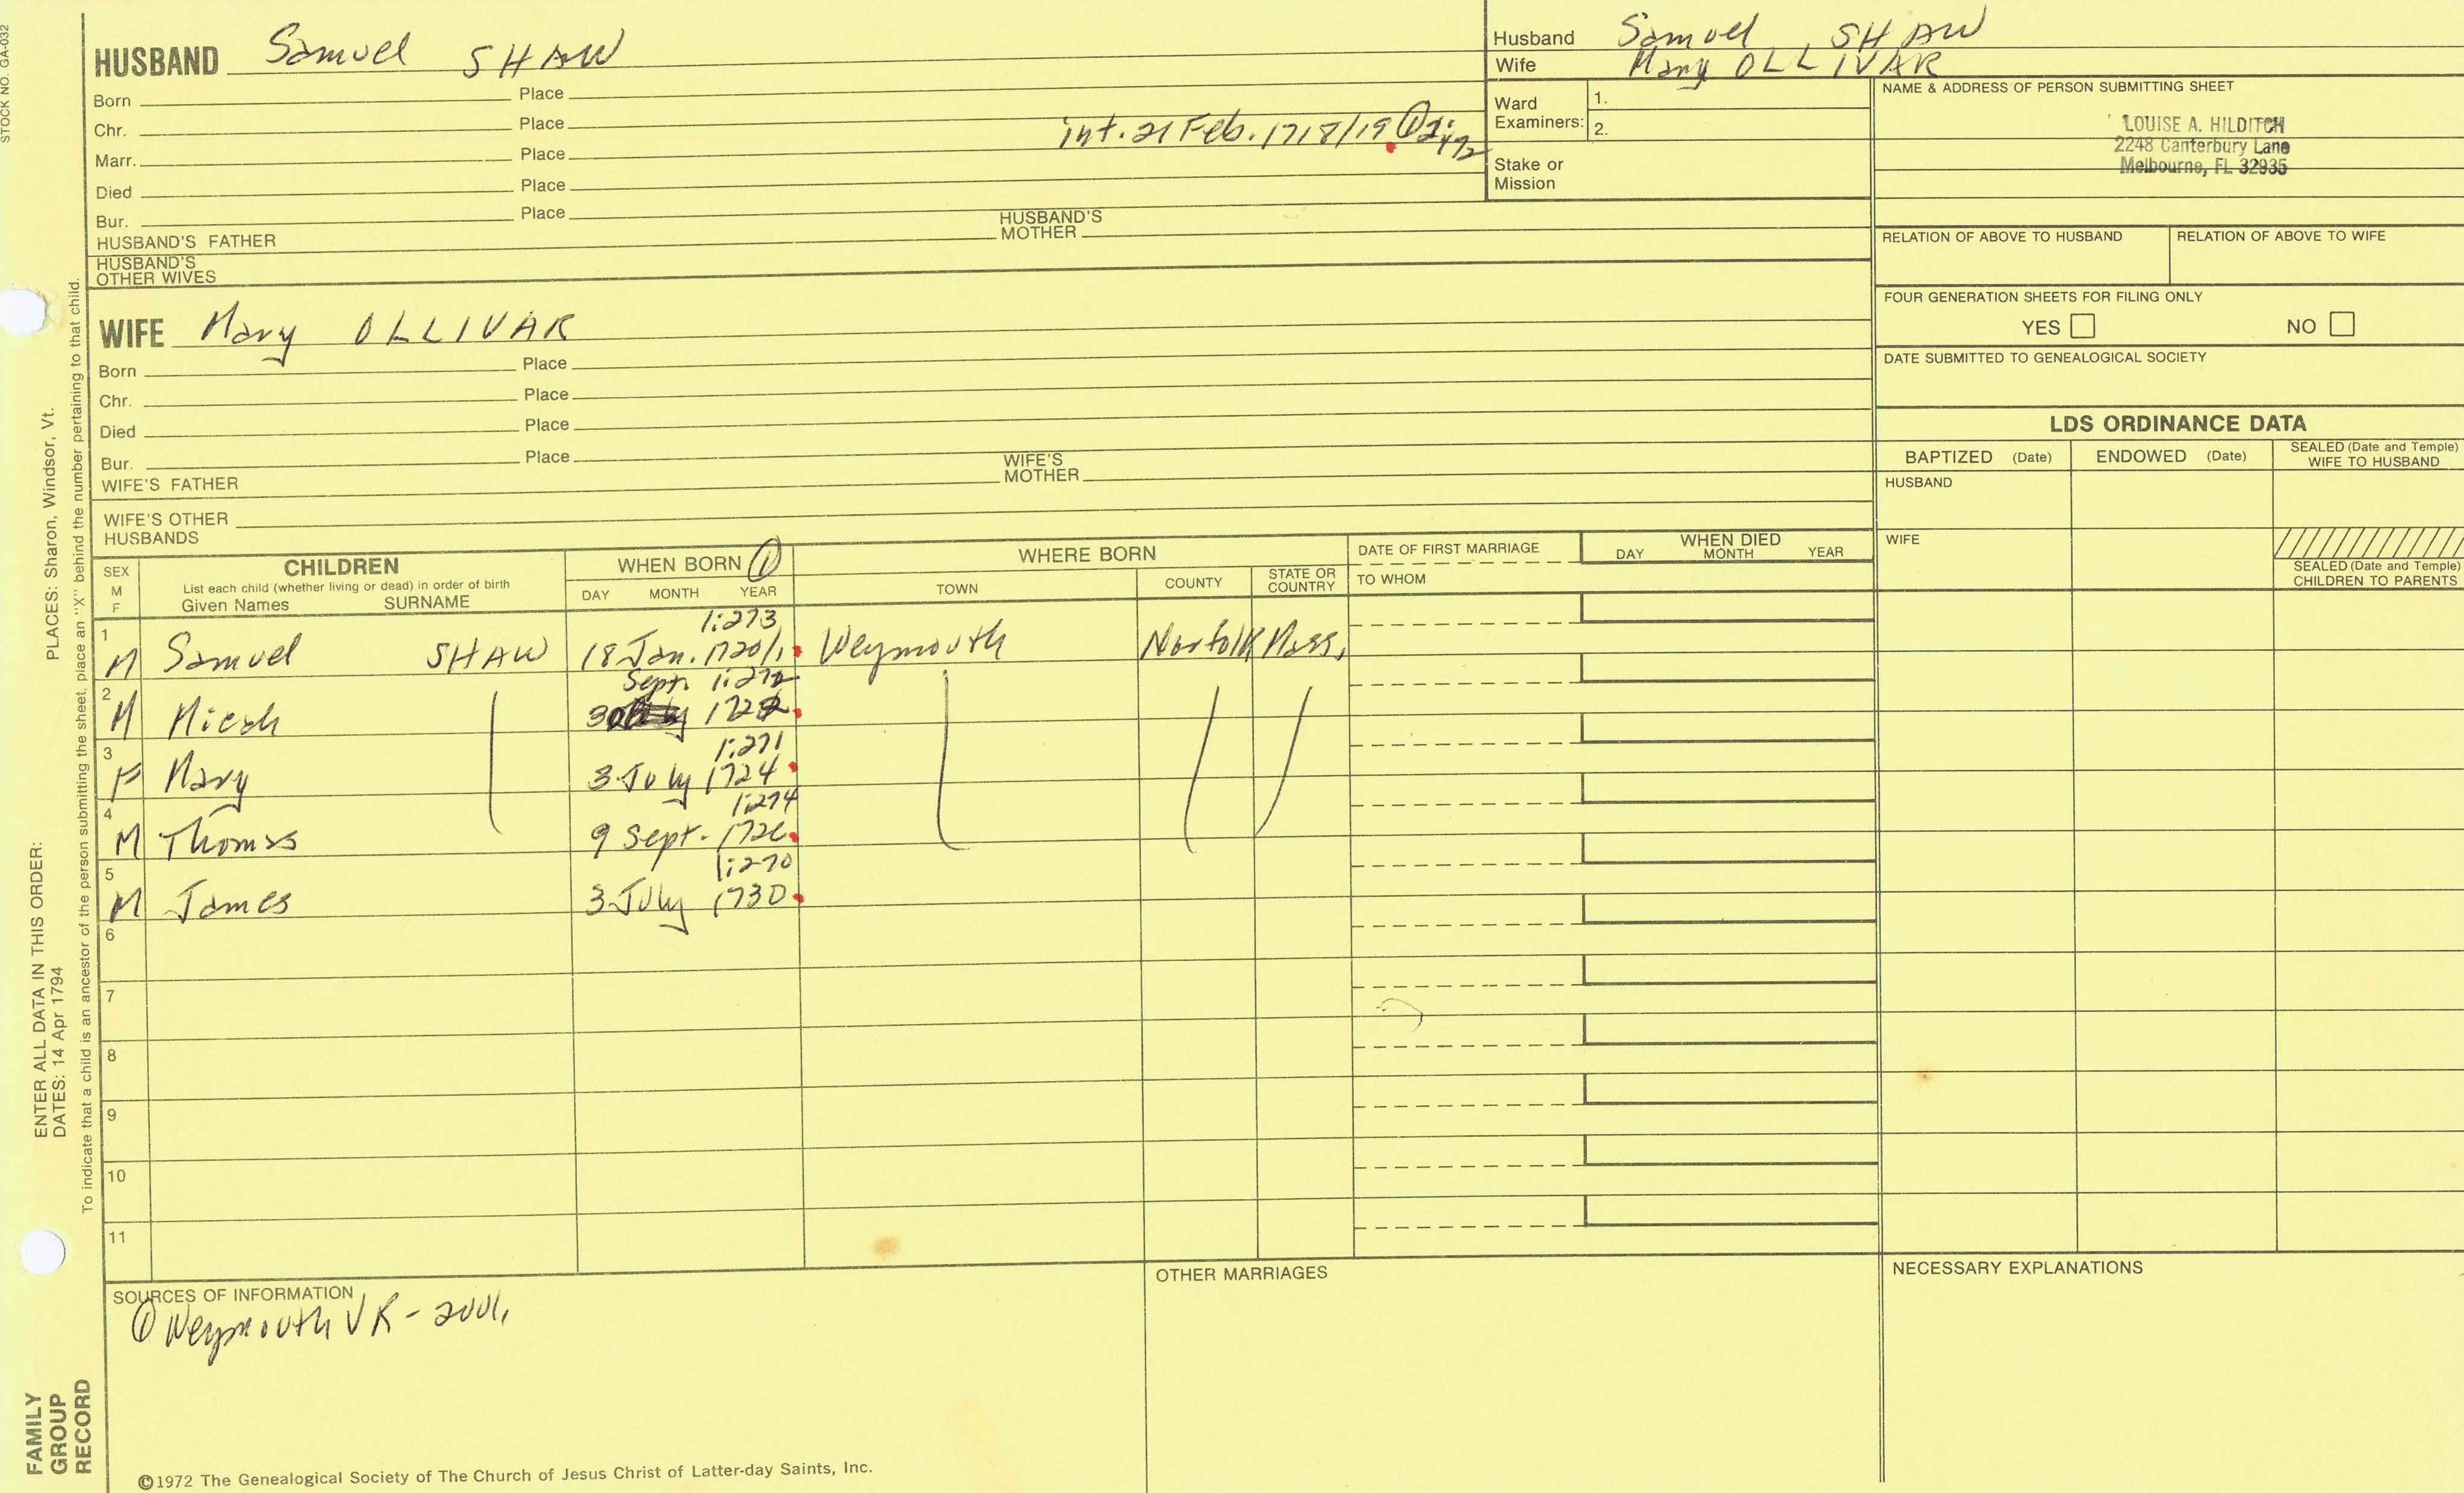 STOCK NO. GA-032
HUSBAND Samuel SHAW
Born Place
Chr. Place
int. 21 Feb. 1718/19 ①
Marr. Place
Died Place
Bur. Place
HUSBAND'S FATHER HUSBAND'S MOTHER
HUSBAND'S OTHER WIVES
Husband Samuel SHAW
Wife Mary OLLIVAR
Ward Examiners: 1.
2.
Stake or Mission
NAME & ADDRESS OF PERSON SUBMITTING SHEET
LOUISE A. HILDITCH
2248 Canterbury Lane
Melbourne, FL 32935
RELATION OF ABOVE TO HUSBAND RELATION OF ABOVE TO WIFE
FOUR GENERATION SHEETS FOR FILING ONLY
YES NO
DATE SUBMITTED TO GENEALOGICAL SOCIETY
WIFE Mary OLLIVAR
Born Place
Chr. Place
Died Place
Bur. Place
WIFE'S FATHER WIFE'S MOTHER
WIFE'S OTHER HUSBANDS
LDS ORDINANCE DATA
BAPTIZED (Date) ENDOWED (Date) SEALED (Date and Temple) WIFE TO HUSBAND
HUSBAND
WIFE
SEALED (Date and Temple) CHILDREN TO PARENTS
SEX M F
CHILDREN
List each child (whether living or dead) in order of birth
Given Names SURNAME
WHEN BORN ①
DAY MONTH YEAR
WHERE BORN
TOWN COUNTY STATE OR COUNTRY
DATE OF FIRST MARRIAGE
TO WHOM
WHEN DIED
DAY MONTH YEAR
1:273
1 M Samuel SHAW 18 Jan. 1720/1 Weymouth Norfolk Mass.
Sept. 1:272
2 M Micah 30 1722
1:271
3 F Mary 3 July 1724
1:274
4 M Thomas 9 Sept. 1726
1:270
5 M James 3 July 1730
6
7
8
9
10
11
SOURCES OF INFORMATION
① Weymouth VR - 2 vol.
OTHER MARRIAGES
NECESSARY EXPLANATIONS
©1972 The Genealogical Society of The Church of Jesus Christ of Latter-day Saints, Inc.
FAMILY
GROUP
RECORD
ENTER ALL DATA IN THIS ORDER:
DATES: 14 Apr 1794 PLACES: Sharon, Windsor, Vt.
To indicate that a child is an ancestor of the person submitting the sheet, place an "X" behind the number pertaining to that child.